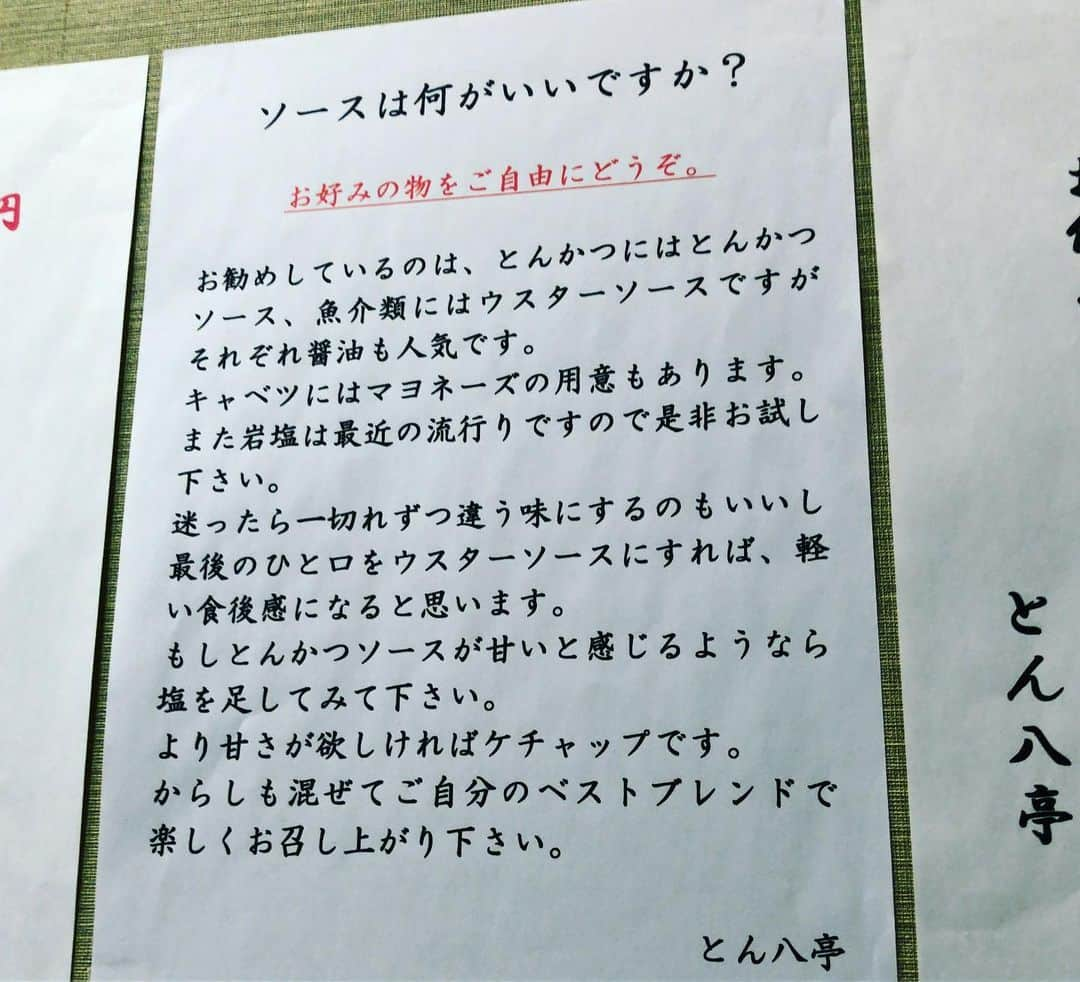 円
ソースは何がいいですか？
お好みの物をご自由にどうぞ。
お勧めしているのは、とんかつにはとんかつ
ソース、魚介類にはウスターソースですが
それぞれ醤油も人気です。
キャベツにはマヨネーズの用意もあります。
また岩塩は最近の流行りですので是非お試し
下さい。
迷ったら一切れずつ違う味にするのもいいし
最後のひと口をウスターソースにすれば、軽
い食後感になると思います。
もしとんかつソースが甘いと感じるようなら
塩を足してみて下さい。
より甘さが欲しければケチャップです。
からしも混ぜてご自分のベストブレンドで
楽しくお召し上がり下さい。
とん八亭
とん八亭